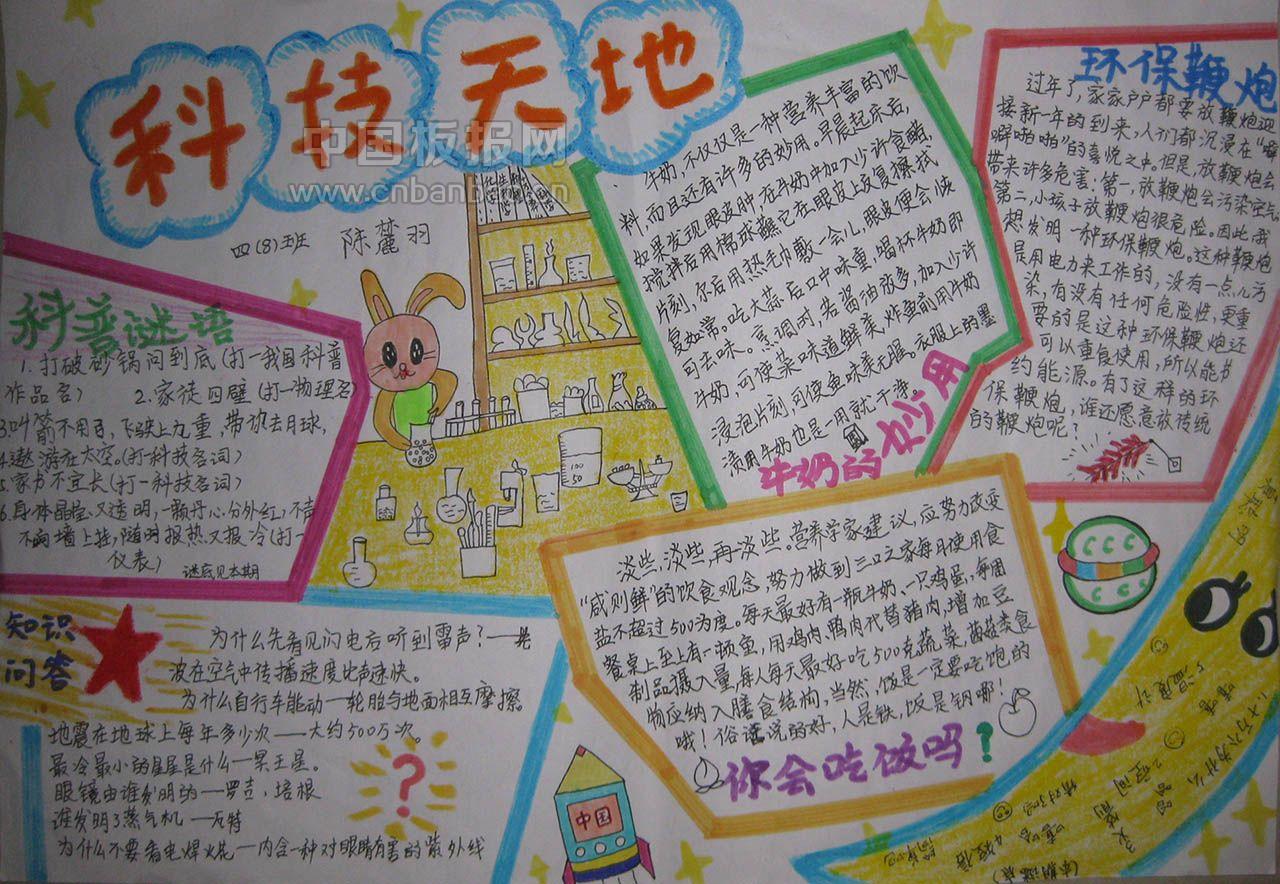 科技天地
中国板报网
www.cnbanbao.cn
四(8)班 陈麓羽
科普谜语
1.打破砂锅问到底(打一我国科普
作品名) 2.家徒四壁(打一物理名
3.叫箭不用弓,飞跃上九重,带你去月球,
4.遨游在太空。(打一科技名词)
5.家书不宜长(打一科技名词)
6.身体晶莹又透明,一颗丹心分外红,不声
不响墙上挂,随时报热又报冷(打一
仪表)
谜底见本期
牛奶,不仅仅是一种营养丰富的饮
料,而且还有许多的妙用。早晨起床后,
如果发现眼皮肿,在牛奶中加入少许食醋,
搅拌后用棉球蘸它在眼皮上反复擦拭
片刻,尔后用热毛巾敷一会儿,眼皮便会恢
复如常。吃大蒜后口中味重,喝杯牛奶即
可去味。烹调时,若酱油放多,加入少许
牛奶,可使菜味道鲜美,炸鱼前用牛奶
浸泡片刻,可使鱼味美无腥。衣服上的墨
渍用牛奶也是一用就干净。
牛奶的妙用
环保鞭炮
过年了,家家户户都要放鞭炮迎
接新一年的到来,人们都沉浸在“噼
噼啪啪”的喜悦之中。但是,放鞭炮会
带来许多危害:第一,放鞭炮会污染空气
第二,小孩子放鞭炮很危险。因此,我
想发明一种环保鞭炮。这种鞭炮
是用电力来工作的,没有一点儿污
染,有没有任何危险性,更重
要的是这种环保鞭炮还
可以重复使用,所以能节
约能源。有了这样的环
保鞭炮,谁还愿意放传统
的鞭炮呢?
100
50
知识
问答
为什么先看见闪电后听到雷声?——光
波在空气中传播速度比声速快。
为什么自行车能动—轮胎与地面相互摩擦。
地震在地球上每年多少次——大约500万次。
最冷最小的星星是什么—冥王星。
眼镜由谁发明的——罗吉,培根
谁发明了蒸气机—瓦特
为什么不要看电焊火花—内含一种对眼睛有害的紫外线
?
淡些,淡些,再一淡些。营养学家建议,应努力改变
“咸则鲜”的饮食观念,努力做到三口之家每月使用食
盐不超过500为度。每天最好有一瓶牛奶、一只鸡蛋,每周
餐桌上至上有一顿鱼,用鸡肉、鸭肉代替猪肉,增加豆
制品摄入量,每人每天最好吃500克蔬菜,菌菇类食
物应纳入膳食结构,当然,饭是一定要吃饱的
哦!俗话说的好,人是铁,饭是钢哪!
你会吃做吗?
中国
1.十万个为什么
2.空间
3.火箭
4.短信
5.温度计